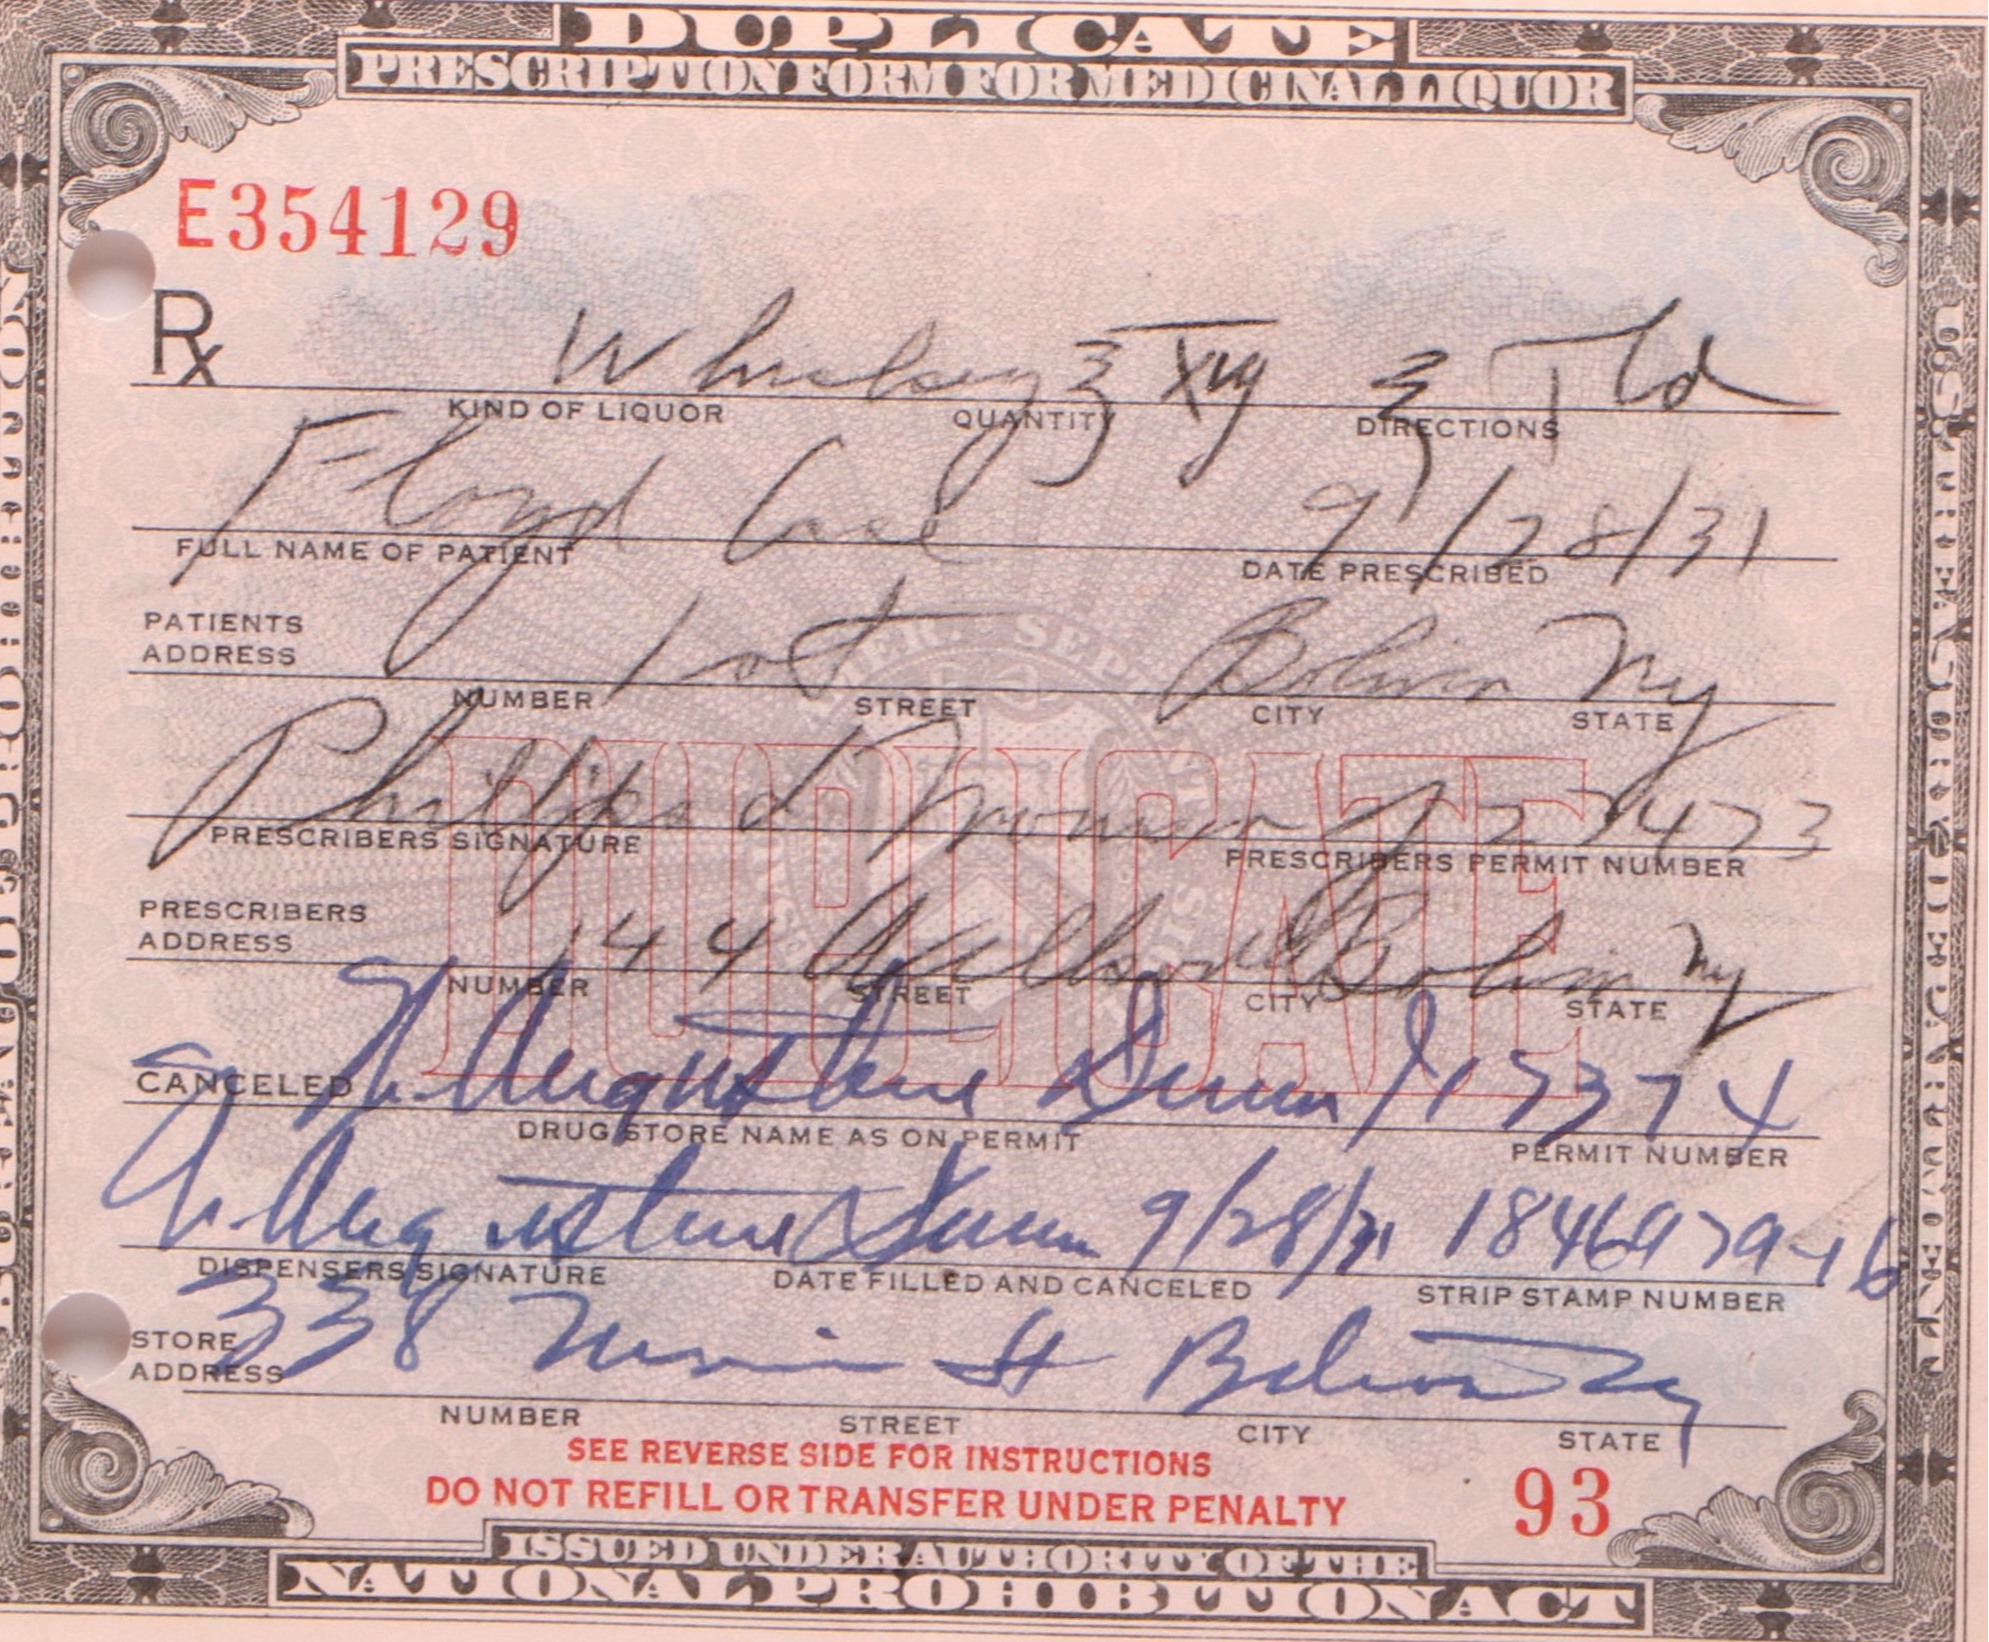 DUPLICATE
PRESCRIPTION FORM FOR MEDICINAL LIQUOR
E354129
Rx Whiskey ℥ XVI ℥ T tid
KIND OF LIQUOR QUANTITY DIRECTIONS
Floyd 9/28/31
FULL NAME OF PATIENT DATE PRESCRIBED
PATIENTS
ADDRESS Bolivar NY
NUMBER STREET CITY STATE
Phillips
PRESCRIBERS SIGNATURE PRESCRIBERS PERMIT NUMBER
DUPLICATE
PRESCRIBERS
ADDRESS 144 Bolivar NY
NUMBER STREET CITY STATE
CANCELED Augustine 17374
DRUG STORE NAME AS ON PERMIT PERMIT NUMBER
Augustine 9/28/31
DISPENSERS SIGNATURE DATE FILLED AND CANCELED STRIP STAMP NUMBER
STORE
ADDRESS 338 Main St Bolivar NY
NUMBER STREET CITY STATE
SEE REVERSE SIDE FOR INSTRUCTIONS
DO NOT REFILL OR TRANSFER UNDER PENALTY
93
ISSUED UNDER AUTHORITY OF THE
NATIONAL PROHIBITION ACT